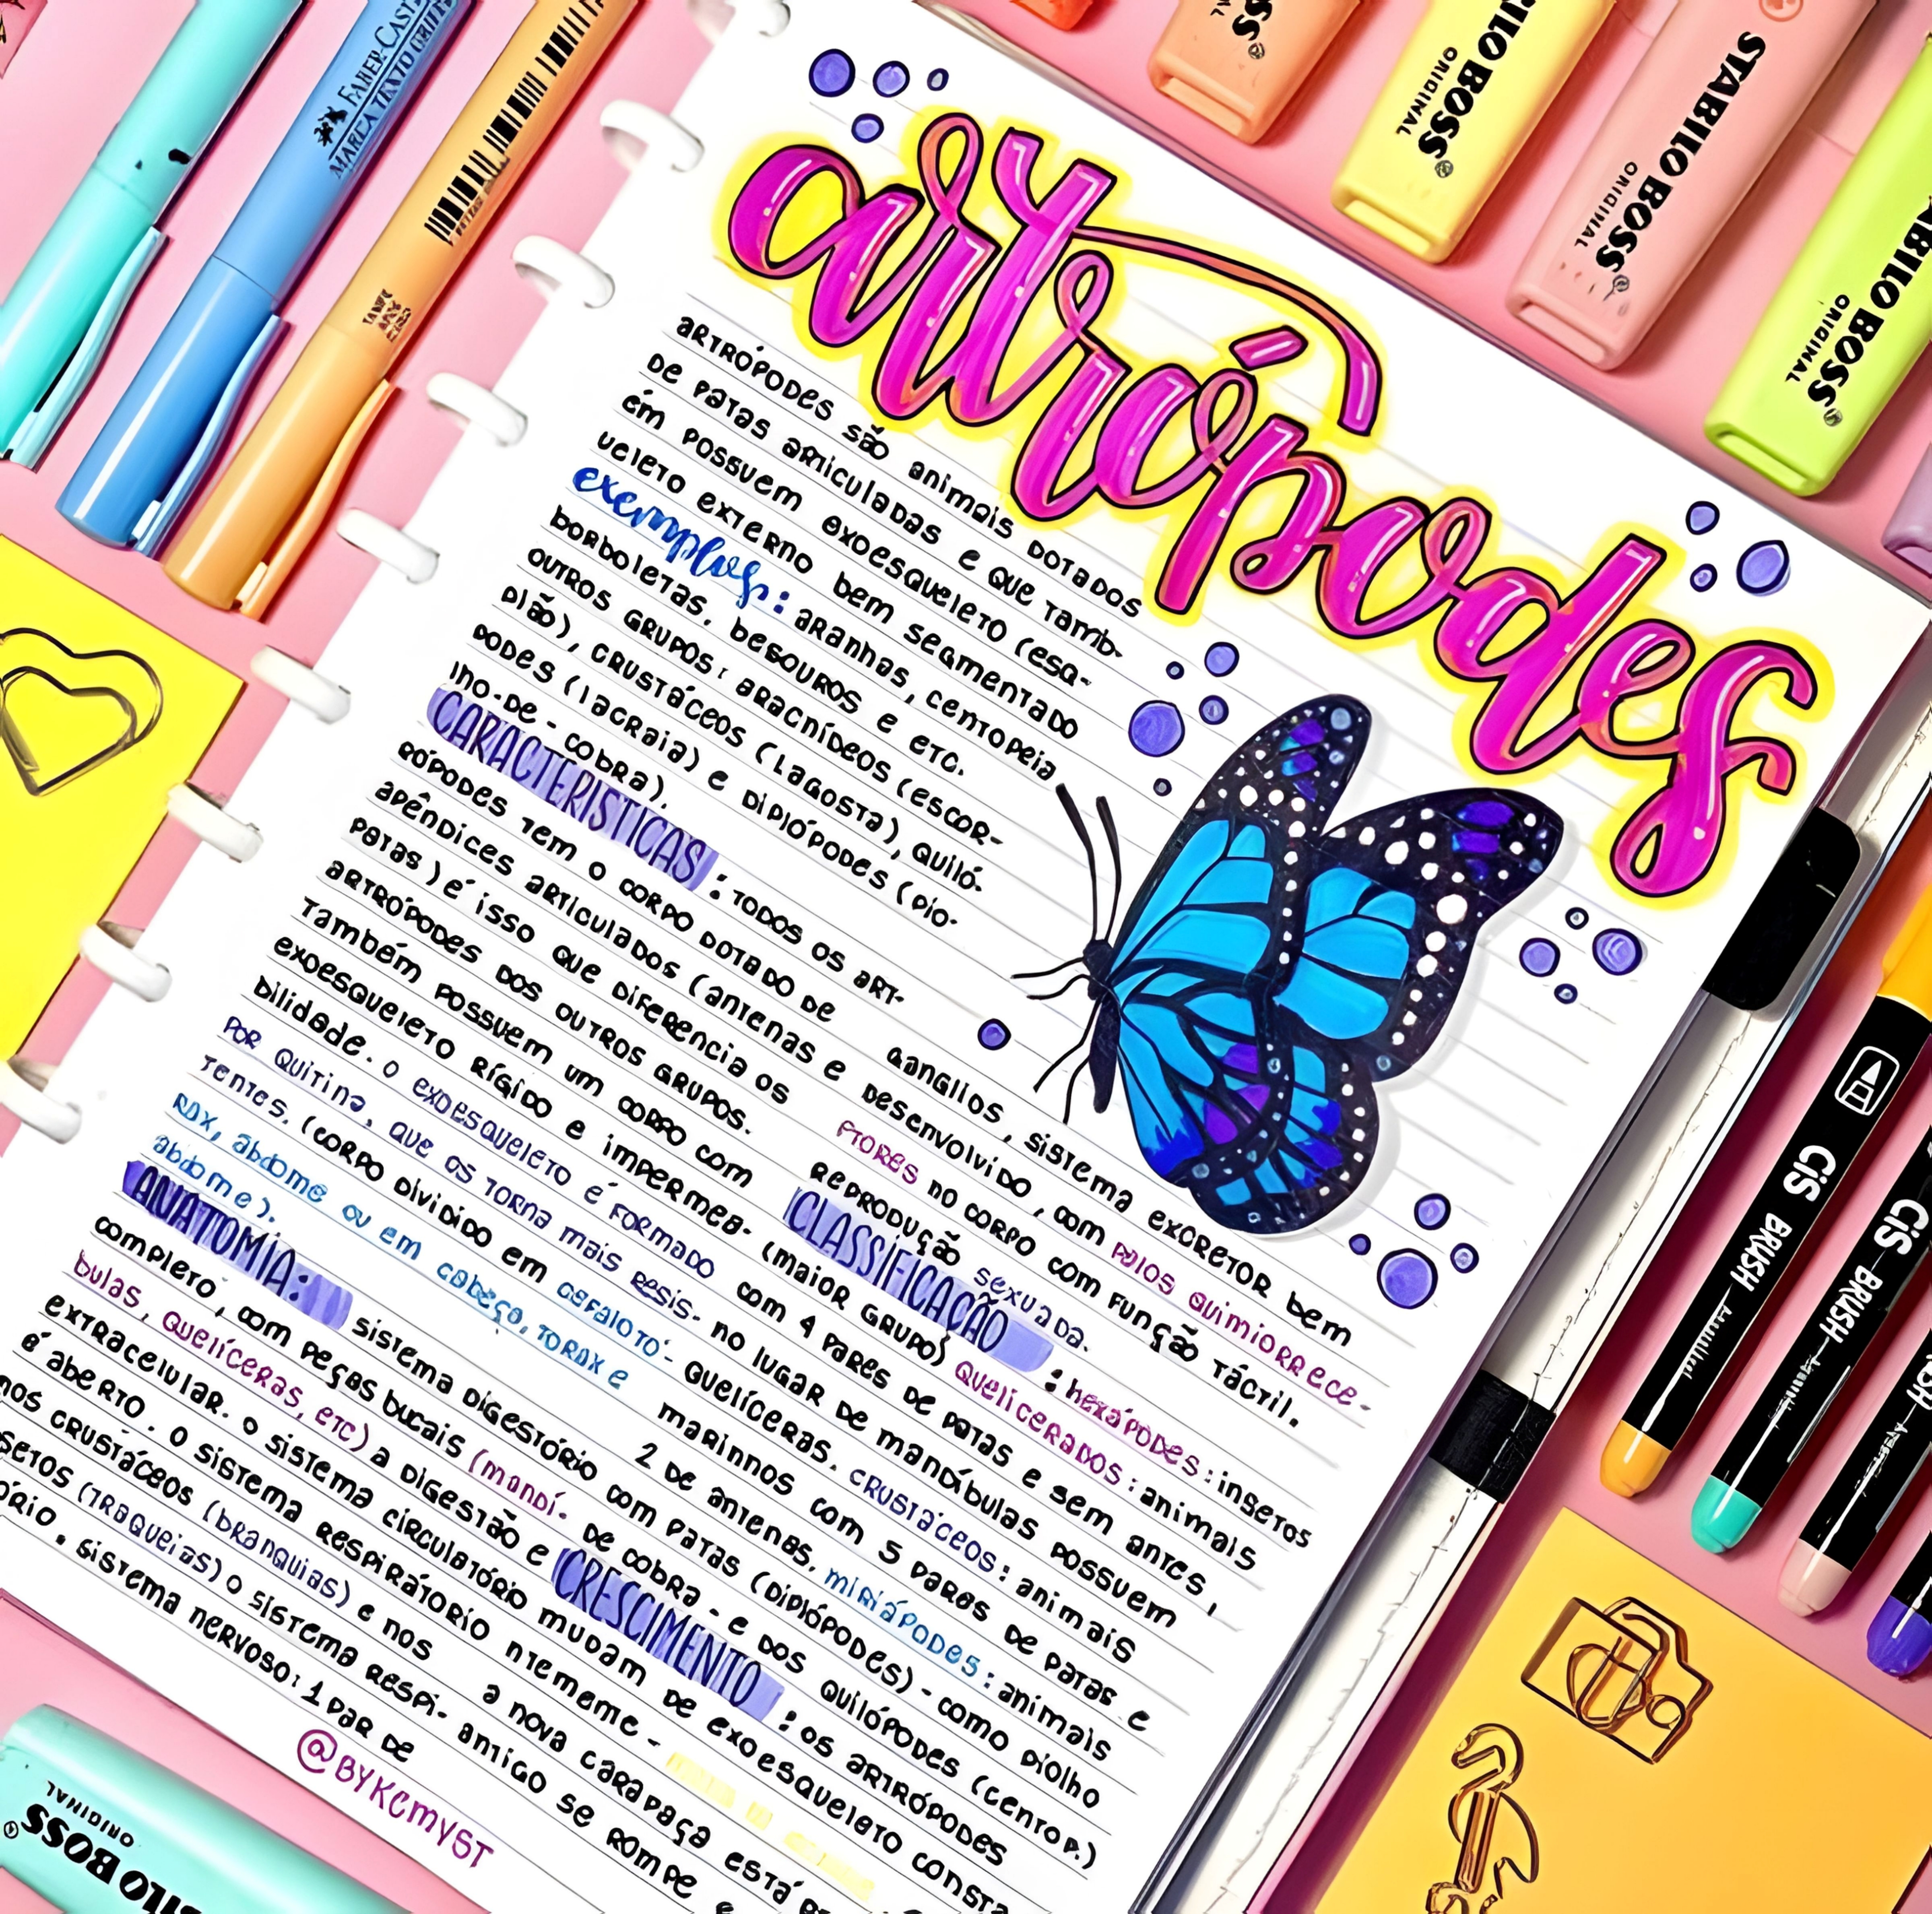 artrópodes
ARTRÓPODES SÃO ANIMAIS DOTADOS
DE PATAS ARTICULADAS E QUE TAMB-
ÉM POSSUEM EXOESQUELETO (ESQ-
UELETO EXTERNO BEM SEGMENTADO
exemplos: ARANHAS, CENTOPEIA
BORBOLETAS, BESOUROS E ETC.
OUTROS GRUPOS: ARACNÍDEOS (ESCOR-
PIÃO), CRUSTÁCEOS (LAGOSTA), QUILÓ-
PODES (LACRAIA) E DIPLÓPODES (PIO-
LHO-DE-COBRA).
CARACTERISTICAS: TODOS OS ART-
RÓPODES TEM O CORPO DOTADO DE
APÊNDICES ARTICULADOS (ANTENAS E
PATAS) É ISSO QUE DIFERENCIA OS
ARTRÓPODES DOS OUTROS GRUPOS.
TAMBÉM POSSUEM UM CORPO COM
EXOESQUELETO RÍGIDO E IMPERMEA-
BILIDADE. O EXOESQUELETO É FORMADO
POR QUITINA, QUE OS TORNA MAIS RESIS-
TENTES. (CORPO DIVIDIDO EM CEFALOTÓ-
RAX, ABDOME OU EM CABEÇA, TORAX E
ABDOME).
ANATOMIA: SISTEMA DIGESTÓRIO
COMPLETO, COM PEÇAS BUCAIS (MANDÍ-
BULAS, QUELÍCERAS, ETC) A DIGESTÃO É
EXTRACELULAR. O SISTEMA CÍRCULATÓRIO
É ABERTO. O SISTEMA RESPIRATÓRIO
NOS CRUSTÁCEOS (BRANQUIAS) E NOS
SETOS (TRAQUEIAS) O SISTEMA RESPI-
ÓRIO. SISTEMA NERVOSO: 1 PAR DE
@BYKCMYST
GANGLIOS, SISTEMA EXCRETOR BEM
DESENVOLVIDO, COM PELOS QUIMIORRECE-
PTORES NO CORPO COM FUNÇÃO TÁCTIL.
REPRODUÇÃO SEXUADA.
CLASSIFICAÇÃO: HEXÁPODES: INSETOS
(MAIOR GRUPO) QUELICERADOS: ANIMAIS
COM 4 PARES DE PATAS E SEM ANTES,
NO LUGAR DE MANDÍBULAS POSSUEM
QUELÍCERAS. CRUSTÁCEOS: ANIMAIS
MARINNOS COM 5 PARES DE PATAS E
2 DE ANTENAS, MIRIÁPODES: ANIMAIS
COM PATAS (DIPLÓPODES) - COMO PIOLHO
DE COBRA - E DOS QUILÓPODES (CENTOP.)
CRESCIMENTO: OS ARTRÓPODES
MUDAM DE EXOESQUELETO CONSTA
NTEMENTE -
A NOVA CARAPAÇA ESTÁ
ANTIGO SE ROMPE E
FABER-CASTELL
STABILO BOSS
ORIGINAL
STABILO BOSS
ORIGINAL
STABILO BOSS
ORIGINAL
STABILO BOSS
ORIGINAL
CiS BRUSH
CiS BRUSH